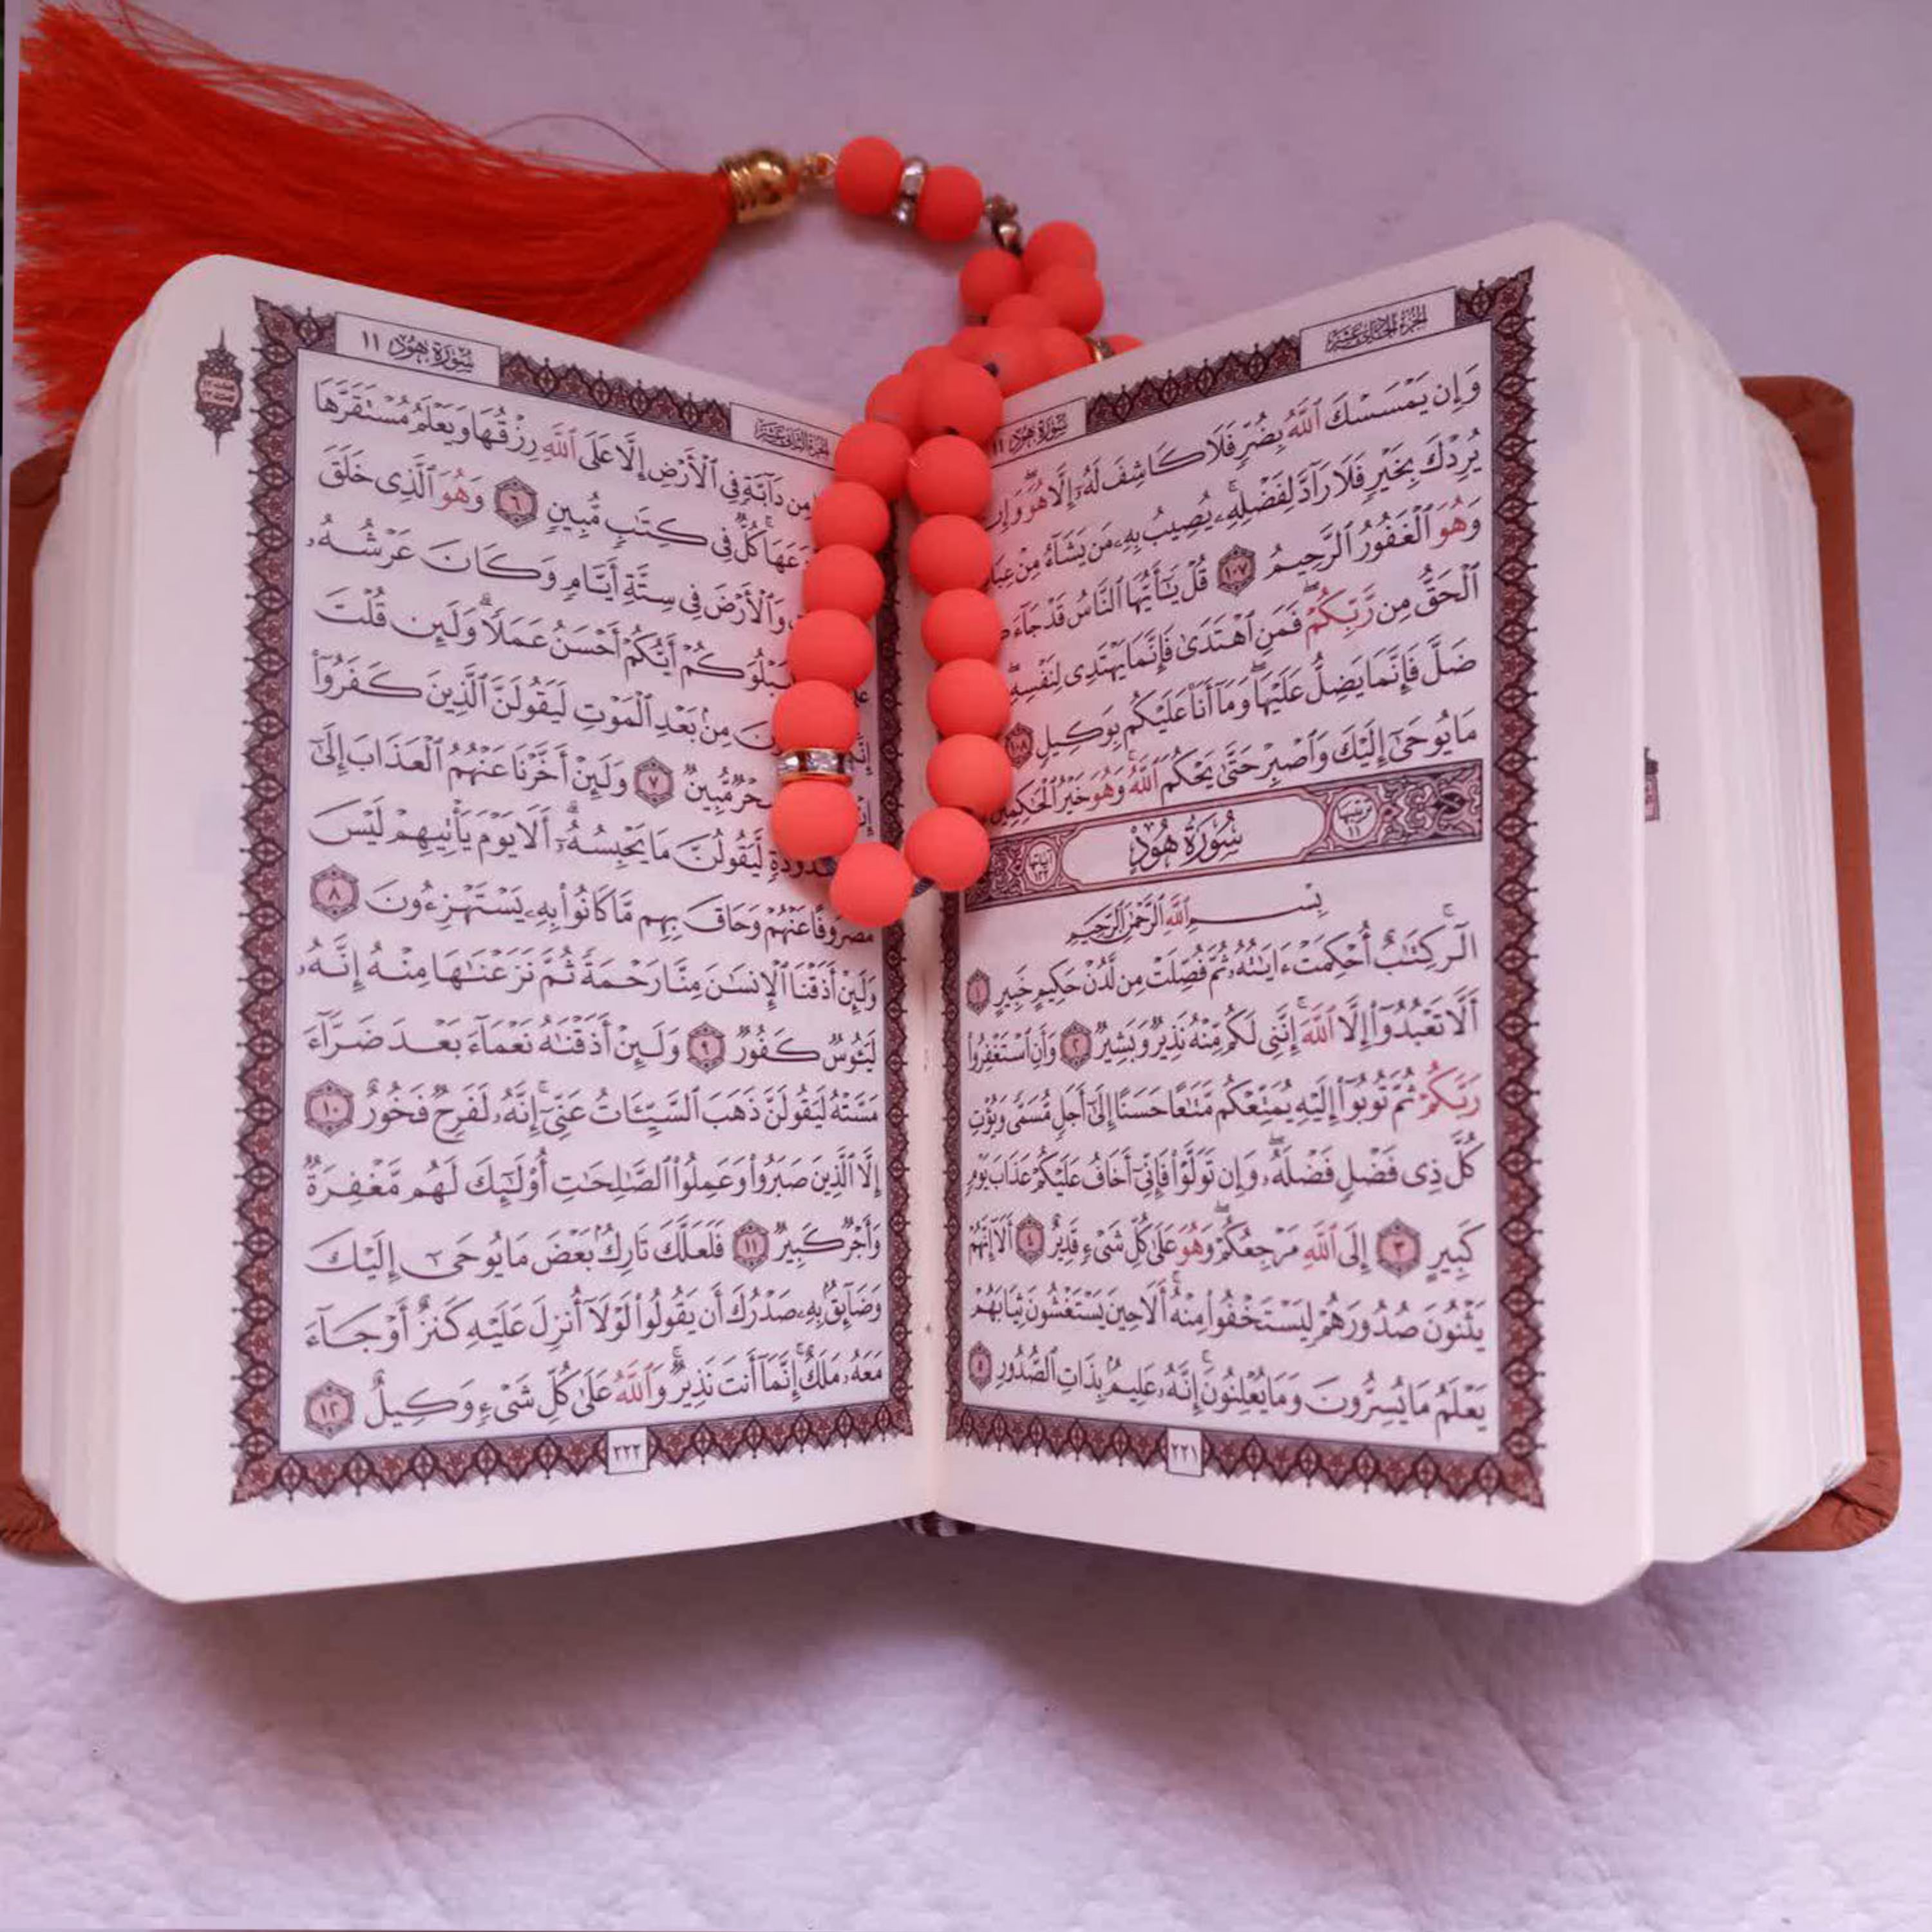 الجزء الحادي عشر
سورة هود ١١
وَإِن يَمْسَسْكَ ٱللَّهُ بِضُرٍّ فَلَا كَاشِفَ لَهُۥٓ إِلَّا هُوَ ۖ وَإِن
يُرِدْكَ بِخَيْرٍ فَلَا رَآدَّ لِفَضْلِهِۦ ۚ يُصِيبُ بِهِۦ مَن يَشَآءُ مِنْ
وَهُوَ ٱلْغَفُورُ ٱلرَّحِيمُ ١٠٧ قُلْ يَـٰٓأَيُّهَا ٱلنَّاسُ قَدْ جَآءَ
ٱلْحَقُّ مِن رَّبِّكُمْ ۖ فَمَنِ ٱهْتَدَىٰ فَإِنَّمَا يَهْتَدِى لِنَفْسِهِۦ ۖ
ضَلَّ فَإِنَّمَا يَضِلُّ عَلَيْهَا ۖ وَمَآ أَنَا۠ عَلَيْكُم بِوَكِيلٍ ١٠٨
مَا يُوحَىٰٓ إِلَيْكَ وَٱصْبِرْ حَتَّىٰ يَحْكُمَ ٱللَّهُ ۚ وَهُوَ خَيْرُ ٱلْحَـٰكِمِينَ
ترتيبها ١١ سُورَةُ هُودٍ آياتها ١٢٣
بِسْمِ ٱللَّهِ ٱلرَّحْمَـٰنِ ٱلرَّحِيمِ
الٓر ۚ كِتَـٰبٌ أُحْكِمَتْ ءَايَـٰتُهُۥ ثُمَّ فُصِّلَتْ مِن لَّدُنْ حَكِيمٍ خَبِيرٍ ١
أَلَّا تَعْبُدُوٓا۟ إِلَّا ٱللَّهَ ۚ إِنَّنِى لَكُم مِّنْهُ نَذِيرٌ وَبَشِيرٌ ٢ وَأَنِ ٱسْتَغْفِرُوا۟
رَبَّكُمْ ثُمَّ تُوبُوٓا۟ إِلَيْهِ يُمَتِّعْكُم مَّتَـٰعًا حَسَنًا إِلَىٰٓ أَجَلٍ مُّسَمًّى وَيُؤْتِ
كُلَّ ذِى فَضْلٍ فَضْلَهُۥ ۖ وَإِن تَوَلَّوْا۟ فَإِنِّىٓ أَخَافُ عَلَيْكُمْ عَذَابَ يَوْمٍ
كَبِيرٍ ٣ إِلَى ٱللَّهِ مَرْجِعُكُمْ ۖ وَهُوَ عَلَىٰ كُلِّ شَىْءٍ قَدِيرٌ ٤ أَلَآ إِنَّهُمْ
يَثْنُونَ صُدُورَهُمْ لِيَسْتَخْفُوا۟ مِنْهُ ۚ أَلَا حِينَ يَسْتَغْشُونَ ثِيَابَهُمْ
يَعْلَمُ مَا يُسِرُّونَ وَمَا يُعْلِنُونَ ۚ إِنَّهُۥ عَلِيمٌۢ بِذَاتِ ٱلصُّدُورِ ٥
٢٢١
سورة هود ١١
مِن دَآبَّةٍ فِى ٱلْأَرْضِ إِلَّا عَلَى ٱللَّهِ رِزْقُهَا وَيَعْلَمُ مُسْتَقَرَّهَا
كُلٌّ فِى كِتَـٰبٍ مُّبِينٍ ٦ وَهُوَ ٱلَّذِى خَلَقَ
وَٱلْأَرْضَ فِى سِتَّةِ أَيَّامٍ وَكَانَ عَرْشُهُۥ
أَيُّكُمْ أَحْسَنُ عَمَلًا ۗ وَلَئِن قُلْتَ
مِنۢ بَعْدِ ٱلْمَوْتِ لَيَقُولَنَّ ٱلَّذِينَ كَفَرُوٓا۟
مُّبِينٌ ٧ وَلَئِنْ أَخَّرْنَا عَنْهُمُ ٱلْعَذَابَ إِلَىٰٓ
لَّيَقُولُنَّ مَا يَحْبِسُهُۥٓ ۗ أَلَا يَوْمَ يَأْتِيهِمْ لَيْسَ
مَصْرُوفًا عَنْهُمْ وَحَاقَ بِهِم مَّا كَانُوا۟ بِهِۦ يَسْتَهْزِءُونَ ٨
وَلَئِنْ أَذَقْنَا ٱلْإِنسَـٰنَ مِنَّا رَحْمَةً ثُمَّ نَزَعْنَـٰهَا مِنْهُ إِنَّهُۥ
لَيَـُٔوسٌ كَفُورٌ ٩ وَلَئِنْ أَذَقْنَـٰهُ نَعْمَآءَ بَعْدَ ضَرَّآءَ
مَسَّتْهُ لَيَقُولَنَّ ذَهَبَ ٱلسَّيِّـَٔاتُ عَنِّىٓ ۚ إِنَّهُۥ لَفَرِحٌ فَخُورٌ ١٠
إِلَّا ٱلَّذِينَ صَبَرُوا۟ وَعَمِلُوا۟ ٱلصَّـٰلِحَـٰتِ أُو۟لَـٰٓئِكَ لَهُم مَّغْفِرَةٌ
وَأَجْرٌ كَبِيرٌ ١١ فَلَعَلَّكَ تَارِكٌۢ بَعْضَ مَا يُوحَىٰٓ إِلَيْكَ
وَضَآئِقٌۢ بِهِۦ صَدْرُكَ أَن يَقُولُوا۟ لَوْلَآ أُنزِلَ عَلَيْهِ كَنزٌ أَوْ جَآءَ
مَعَهُۥ مَلَكٌ ۚ إِنَّمَآ أَنتَ نَذِيرٌ ۚ وَٱللَّهُ عَلَىٰ كُلِّ شَىْءٍ وَكِيلٌ ١٢
٢٢٢